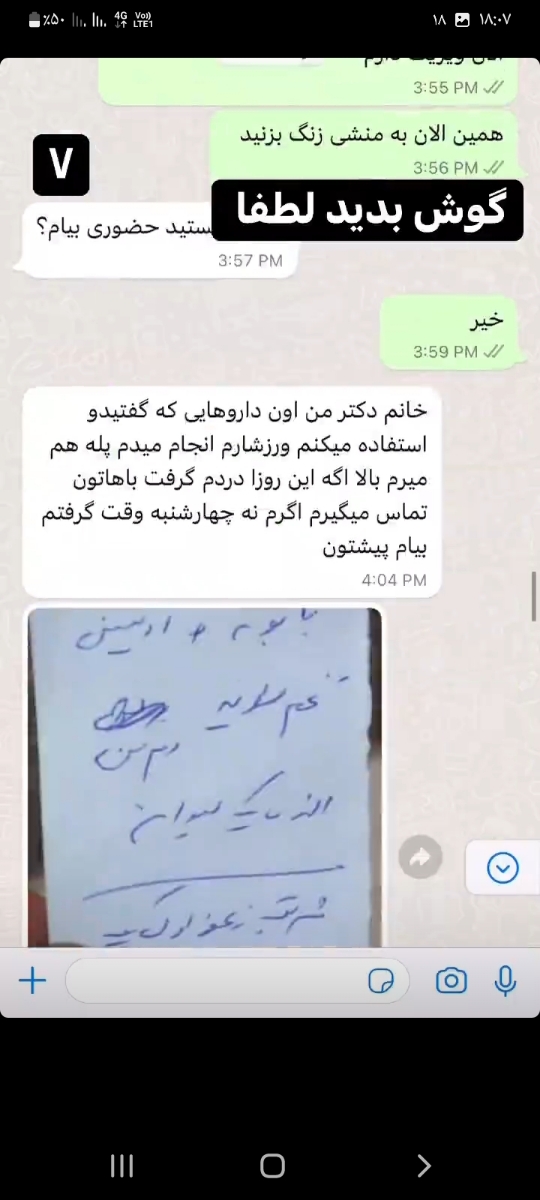 ٪۵۰ 4G Vo)) LTE1 ۱۸ ۱۸:۰۷
3:55 PM
همین الان به منشی زنگ بزنید
3:56 PM
۷
گوش بدید لطفا
حضوری بیام؟
3:57 PM
خیر
3:59 PM
خانم دکتر من اون داروهایی که گفتیدو
استفاده میکنم ورزشارم انجام میدم پله هم
میرم بالا اگه این روزا دردم گرفت باهاتون
تماس میگیرم اگرم نه چهارشنبه وقت گرفتم
بیام پیشتون
4:04 PM
بابونه +
تخم
لیوان
شربت زعفران